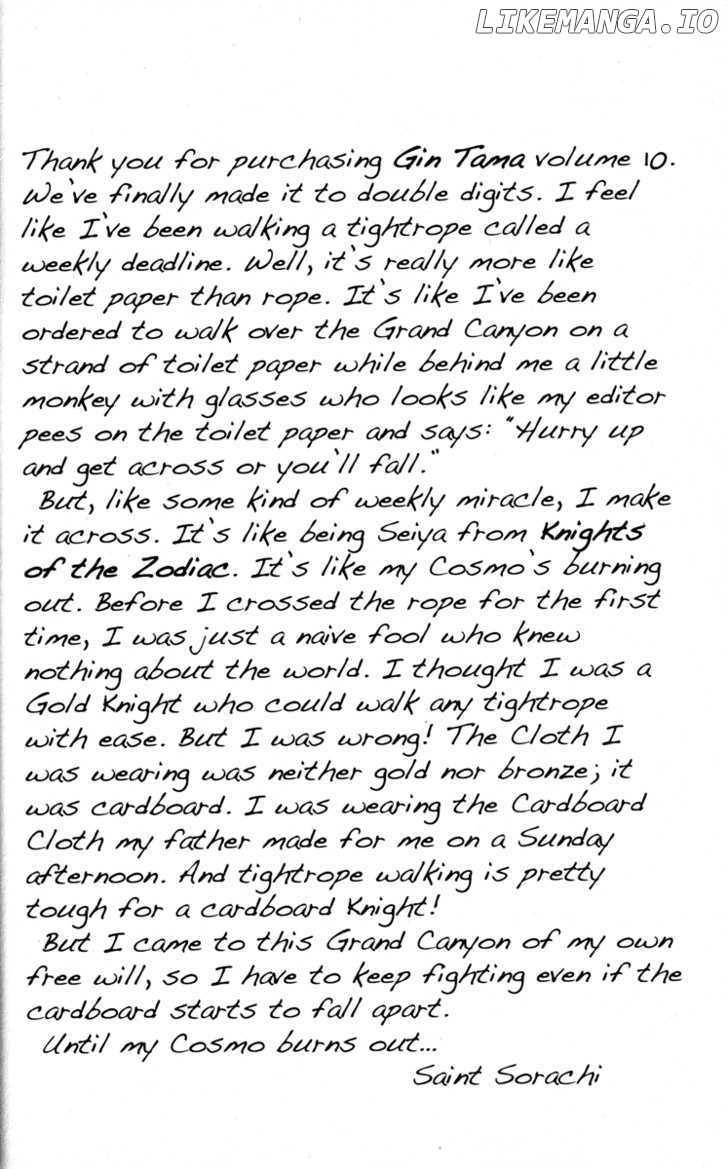 LIKEMANGA.IO
Thank you for purchasing Gin Tama volume 10.
We've finally made it to double digits. I feel
like I've been walking a tightrope called a
weekly deadline. Well, it's really more like
toilet paper than rope. It's like I've been
ordered to walk over the Grand Canyon on a
strand of toilet paper while behind me a little
monkey with glasses who looks like my editor
pees on the toilet paper and says: "Hurry up
and get across or you'll fall."
But, like some kind of weekly miracle, I make
it across. It's like being Seiya from Knights
of the Zodiac. It's like my Cosmo's burning
out. Before I crossed the rope for the first
time, I was just a naive fool who knew
nothing about the world. I thought I was a
Gold Knight who could walk any tightrope
with ease. But I was wrong! The Cloth I
was wearing was neither gold nor bronze; it
was cardboard. I was wearing the Cardboard
Cloth my father made for me on a Sunday
afternoon. And tightrope walking is pretty
tough for a cardboard Knight!
But I came to this Grand Canyon of my own
free will, so I have to keep fighting even if the
cardboard starts to fall apart.
Until my Cosmo burns out...
Saint Sorachi